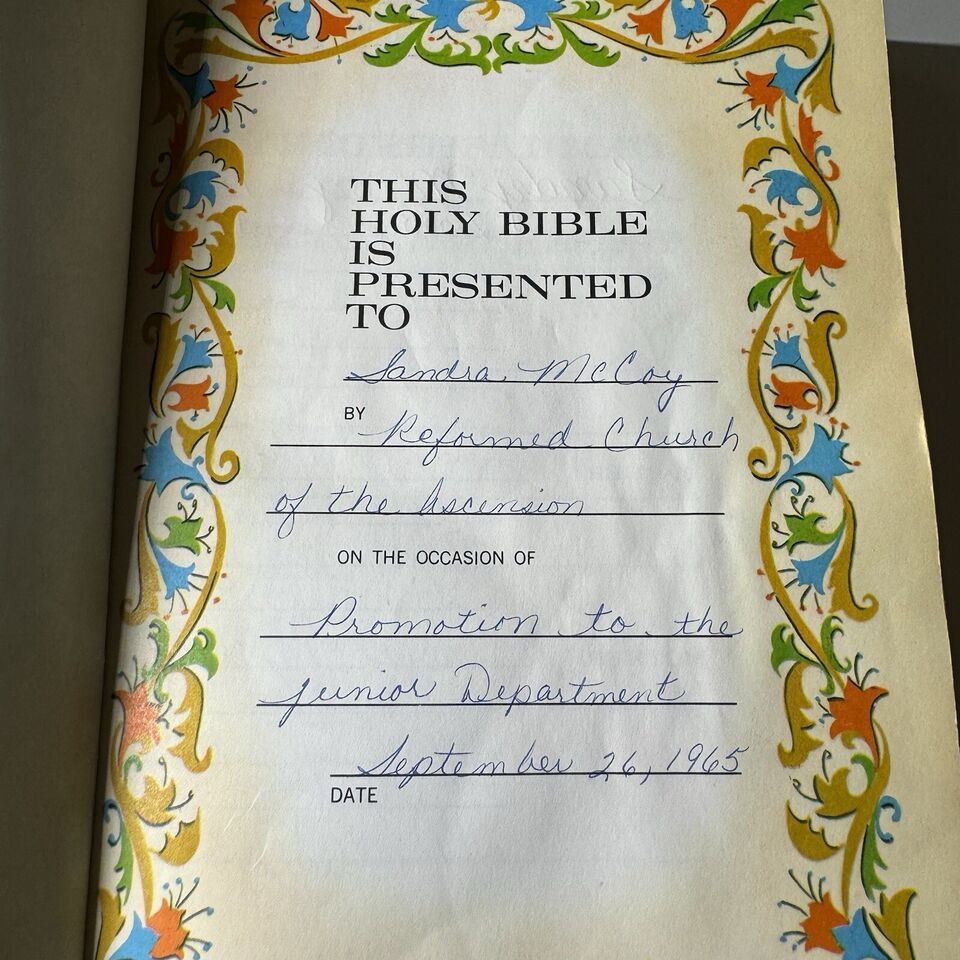 THIS
HOLY BIBLE
IS
PRESENTED
TO
Sandra McCoy
BY Reformed Church
of the Ascension
ON THE OCCASION OF
Promotion to the
Junior Department
September 26, 1965
DATE